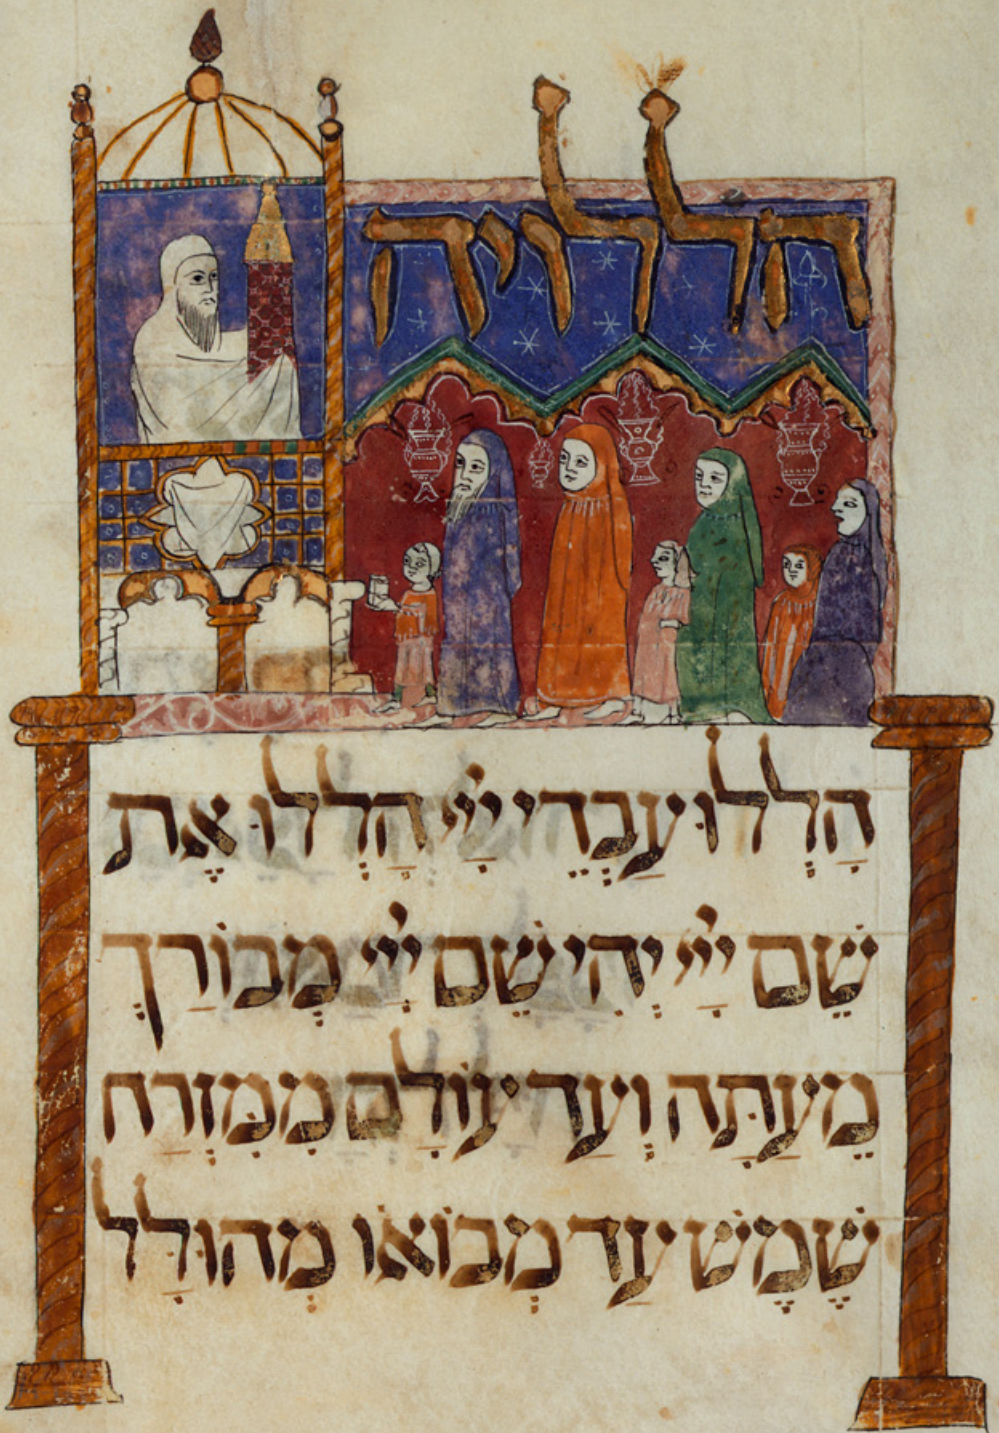 הללויה
הַלְלוּ עַבְדֵי יְיָ הַלְלוּ אֶת
שֵׁם יְיָ יְהִי שֵׁם יְיָ מְבוֹרָךְ
מֵעַתָּה וְעַד עוֹלָם מִמִּזְרַח
שֶׁמֶשׁ עַד מְבוֹאוֹ מְהוּלַל